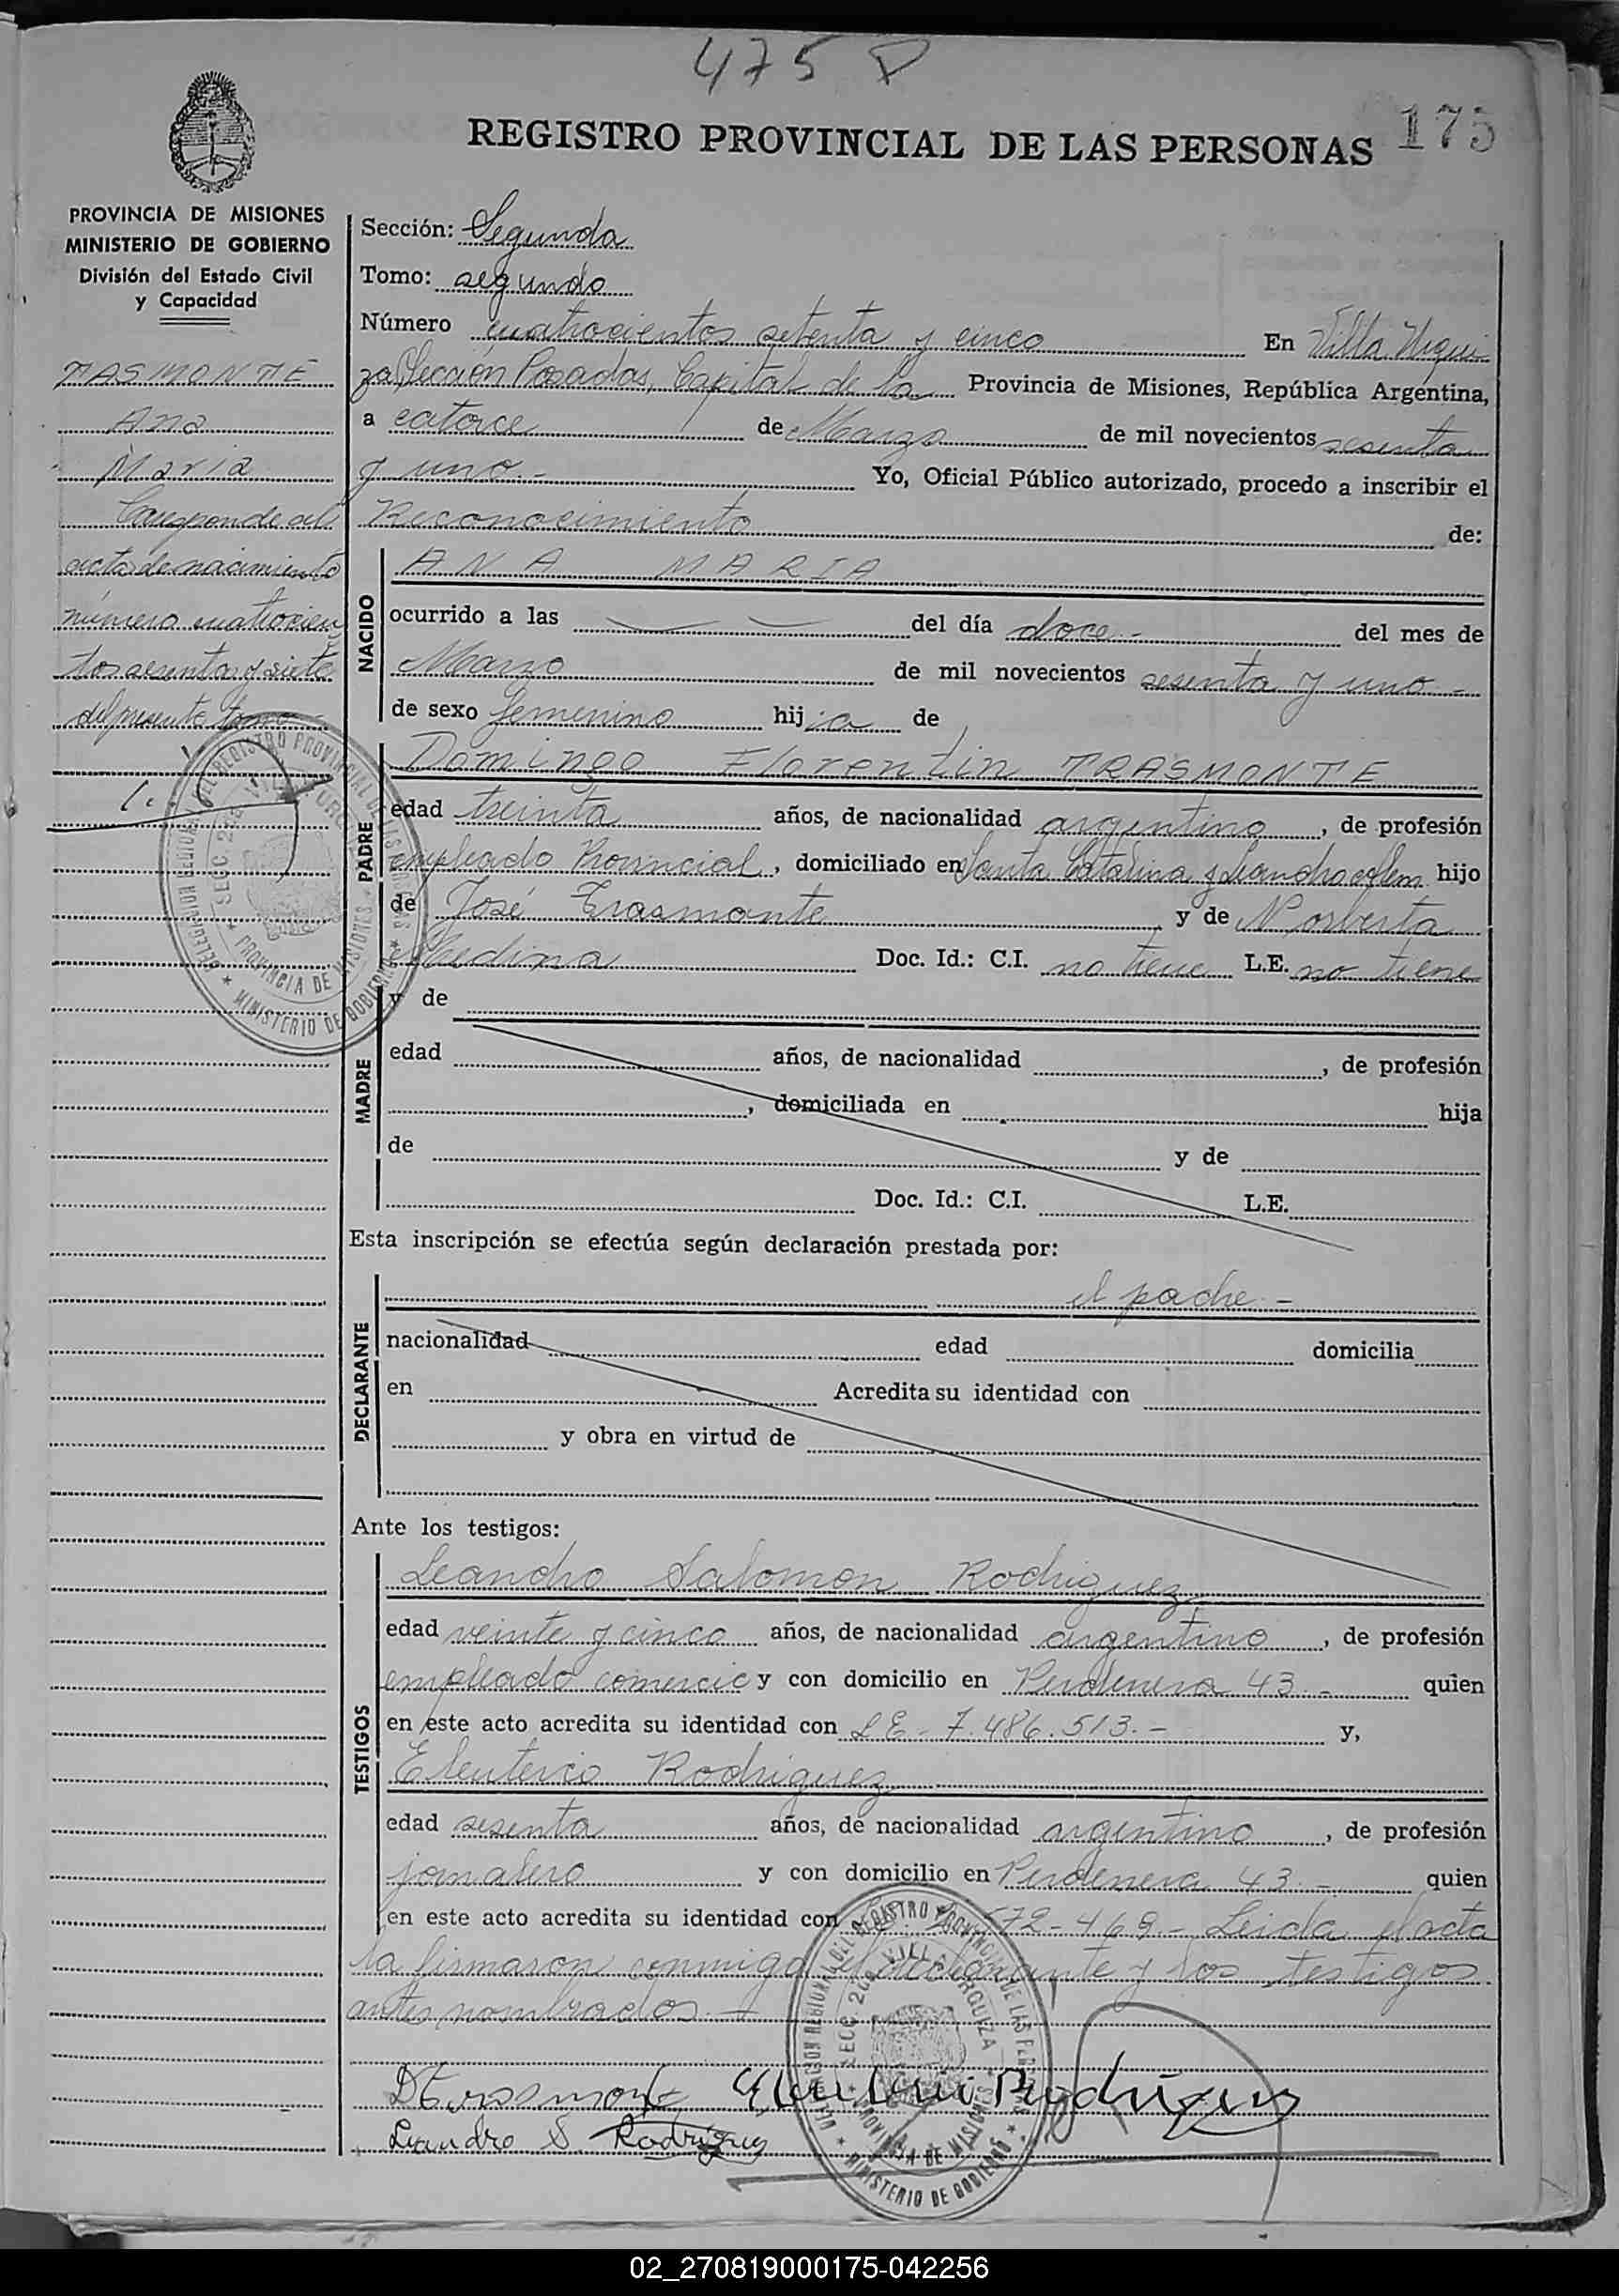 475 P
REGISTRO PROVINCIAL DE LAS PERSONAS 175
PROVINCIA DE MISIONES
MINISTERIO DE GOBIERNO
División del Estado Civil
y Capacidad
TASMONTE
Ana
Maria
Corresponde al
acta de nacimiento
número cuatrocien
tos sesenta y siete
del presente tomo
Sección: Segunda
Tomo: segundo
Número cuatrocientos setenta y cinco En Villa Urqui
za Sección Posadas, Capital de la Provincia de Misiones, República Argentina,
a catorce de Marzo de mil novecientos sesenta
y uno.- Yo, Oficial Público autorizado, procedo a inscribir el
Reconocimiento de:
NACIDO
ANA MARIA
ocurrido a las — — del día doce.- del mes de
Marzo de mil novecientos sesenta y uno.-
de sexo femenino hij a de
PADRE
Domingo Florentin TRASMONTE
edad treinta años, de nacionalidad argentino, de profesión
empleado Provincial, domiciliado en Santa Catalina y Leandro Alem hijo
de José Trasmonte y de Norberta
Medina Doc. Id.: C.I. no tiene L.E. no tiene
MADRE
y de
edad años, de nacionalidad , de profesión
, domiciliada en hija
de y de
Doc. Id.: C.I. L.E.
Esta inscripción se efectúa según declaración prestada por:
DECLARANTE
el padre.-
nacionalidad edad domicilia
en Acredita su identidad con
y obra en virtud de
Ante los testigos:
TESTIGOS
Leandro Salomon Rodriguez
edad veinte y cinco años, de nacionalidad argentino, de profesión
empleado comercio y con domicilio en 43.- quien
en este acto acredita su identidad con LE- 7.486.513.- y,
Eleuterio Rodriguez
edad sesenta años, de nacionalidad argentino, de profesión
jornalero y con domicilio en 43.- quien
en este acto acredita su identidad con 572-469.- Leida el acta
la firmaron conmigo el declarante y los testigos
antes nombrados.-
DTrasmonte Eleuterio Rodriguez
Leandro S. Rodriguez
DELEGACION REGIONAL DEL REGISTRO PROVINCIAL DE LAS PERSONAS
SECC. 2da VILLA URQUIZA
PROVINCIA DE MISIONES
MINISTERIO DE GOBIERNO
02_270819000175-042256